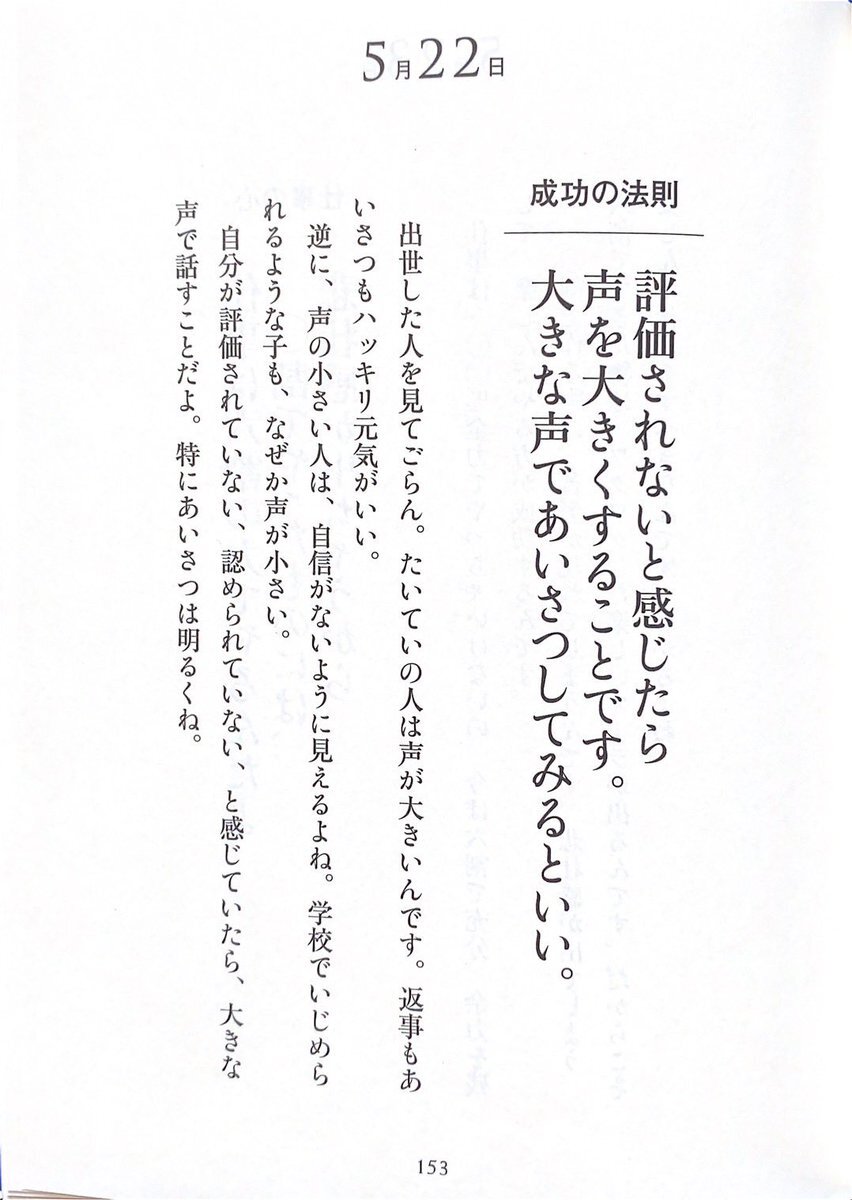 5月22日
成功の法則
評価されないと感じたら
声を大きくすることです。
大きな声であいさつしてみるといい。
出世した人を見てごらん。たいていの人は声が大きいんです。返事もあ
いさつもハッキリ元気がいい。
逆に、声の小さい人は、自信がないように見えるよね。学校でいじめら
れるような子も、なぜか声が小さい。
自分が評価されていない、認められていない、と感じていたら、大きな
声で話すことだよ。特にあいさつは明るくね。
153